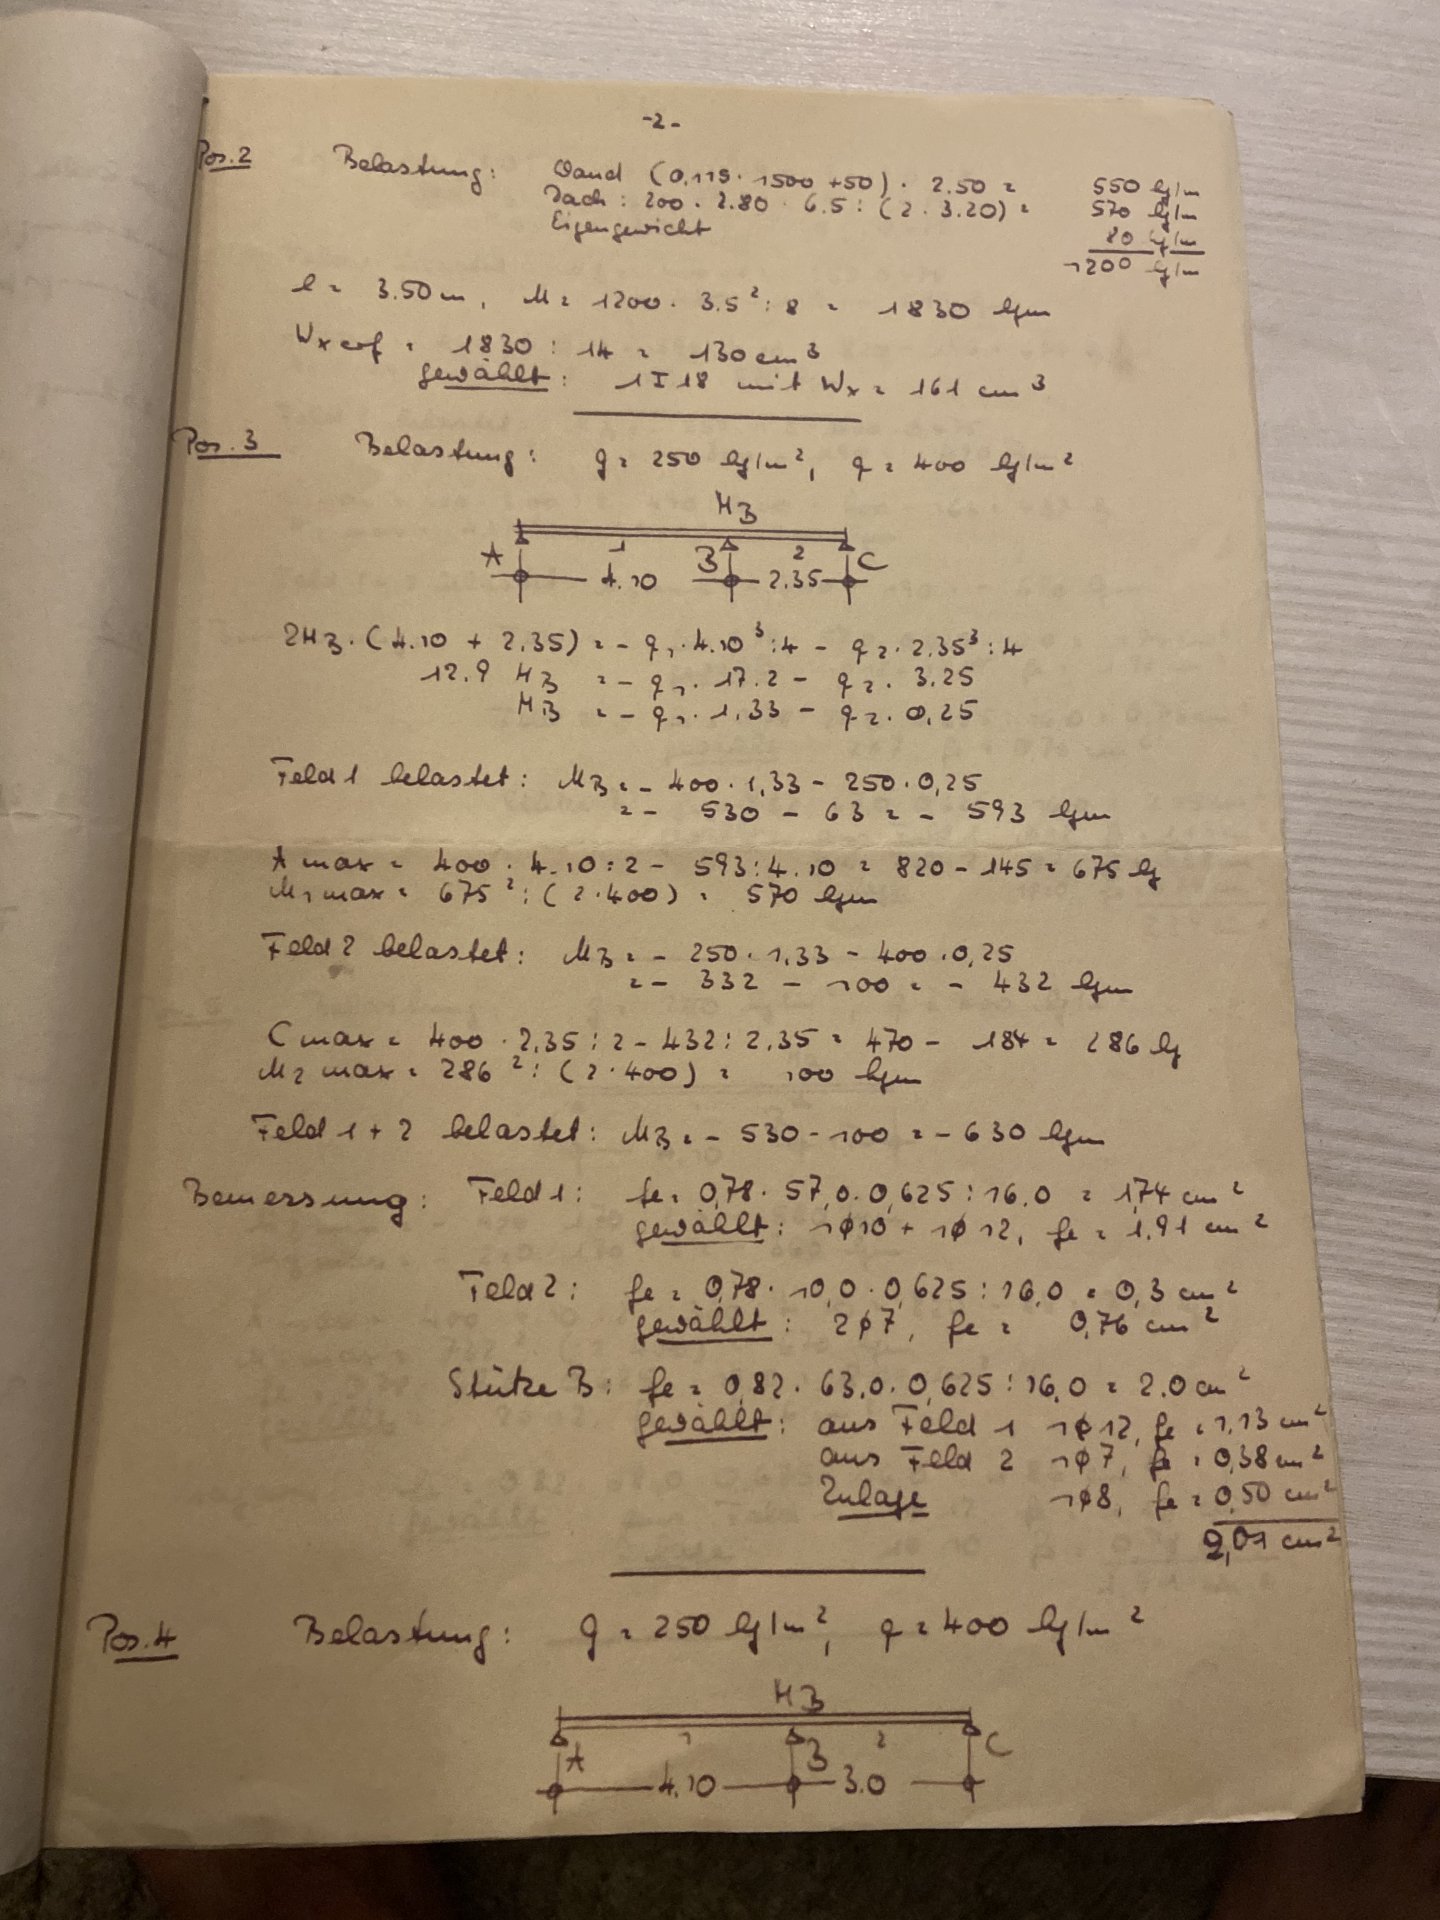 -2-
Pos. 2 Belastung: Wand (0.115 · 1500 + 50) · 2.50 = 550 kg/m
Dach: 200 · 2.80 · 6.5 : (2 · 3.20) = 570 kg/m
Eigengewicht 80 kg/m
1200 kg/m
l = 3.50 m, M = 1200 · 3.5² : 8 = 1830 kgm
Wx erf = 1830 : 14 = 130 cm³
gewählt: 1 I 18 mit Wx = 161 cm³
Pos. 3 Belastung: g = 250 kg/m², q = 400 kg/m²
MB
A 1 B 2 C
4.10 2.35
2MB · (4.10 + 2.35) = - q₁ · 4.10³ : 4 - q₂ · 2.35³ : 4
12.9 MB = - q₁ · 17.2 - q₂ · 3.25
MB = - q₁ · 1,33 - q₂ · 0,25
Feld 1 belastet: MB = - 400 · 1,33 - 250 · 0,25
= - 530 - 63 = - 593 kgm
A max = 400 · 4.10 : 2 - 593 : 4.10 = 820 - 145 = 675 kg
M₁ max = 675² : (2 · 400) = 570 kgm
Feld 2 belastet: MB = - 250 · 1,33 - 400 · 0,25
= - 332 - 100 = - 432 kgm
C max = 400 · 2,35 : 2 - 432 : 2,35 = 470 - 184 = 286 kg
M₂ max = 286² : (2 · 400) = 100 kgm
Feld 1 + 2 belastet: MB = - 530 - 100 = - 630 kgm
Bemessung: Feld 1: fe = 0,78 · 57,0 · 0,625 : 16,0 = 1,74 cm²
gewählt: 1ϕ10 + 1ϕ12, fe = 1.91 cm²
Feld 2: fe = 0,78 · 10,0 · 0,625 : 16,0 = 0,3 cm²
gewählt: 2ϕ7, fe = 0,76 cm²
Stütze B: fe = 0,82 · 63,0 · 0,625 : 16,0 = 2.0 cm²
gewählt: aus Feld 1 1ϕ12, fe = 1,13 cm²
aus Feld 2 1ϕ7, fe = 0,38 cm²
Zulage 1ϕ8, fe = 0,50 cm²
2,01 cm²
Pos. 4 Belastung: g = 250 kg/m², q = 400 kg/m²
MB
A 1 B 2 C
4.10 3.0